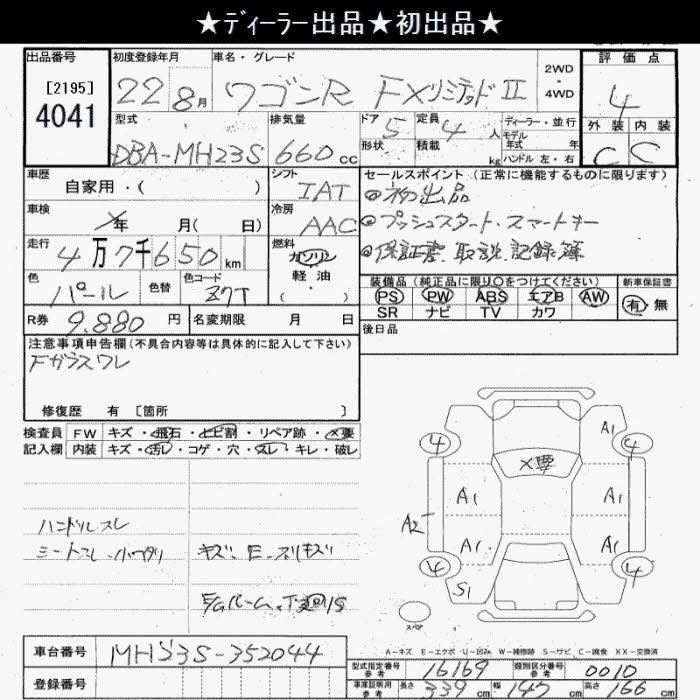 ★ディーラー出品★初出品★
出品番号 初度登録年月 車名・グレード 評価点
[2195] 22 8月 ワゴンR FXリミテッドII 2WD 4WD 4
4041
型式 排気量 ドア 5 定員 4 人 ディーラー・並行 外装 内装
モデル年式 年
DBA-MH23S 660 cc 形状 積載 kg ハンドル 左・右 C C
車歴 自家用・( ) シフト IAT セールスポイント(正常に機能するものに限ります)
◎初出品
車検 年 月( 日) 冷房 AAC ◎プッシュスタート、スマートキー
走行 4万7千650 km 燃料 ガソリン 軽油 ( ) ◎保証書 取説 記録簿
色 パール 色替 色コード Z7T 装備品(純正品に限り○をつけてください) 新車保証書
PS PW ABS エアB AW 有・無
SR ナビ TV カワ
R券 9,880 円 名変期限 月 日 後日品
注意事項申告欄(不具合内容等は具体的に記入して下さい)
Fガラスワレ
修復歴 有 [箇所 ]
検査員 FW キズ・飛石・ヒビ割・リペア跡・×要
記入欄 内装 キズ・汚レ・コゲ・穴・スレ・キレ・破レ
4 A1 4
×要
A1 A1
A2
A1 A1
4 S1 4
ハンドルスレ
シートスレ・
キズ、E-スリキズ
スペア
A-キズ E-エクボ U-凹み W-補修跡 S-サビ C-腐食 XX-交換済
車台番号 MH23S-352044
登録番号
型式指定番号 参考 16169 類別区分番号 参考 0010
車庫証明用 参考 長さ 339 cm 幅 147 cm 高さ 166 cm